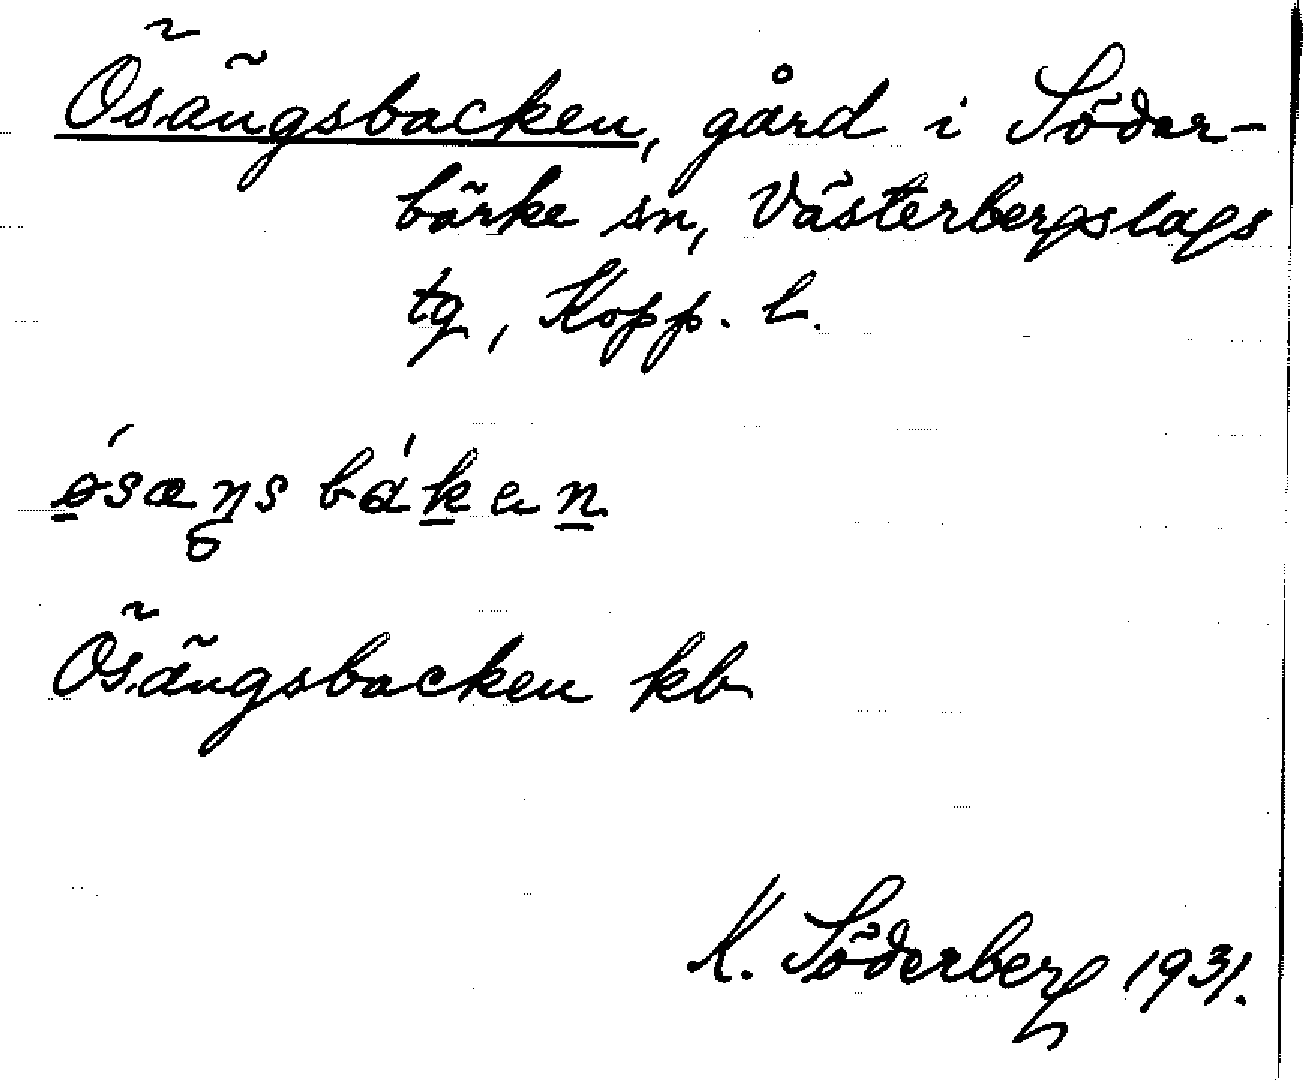 Ösängsbacken, gård i Söder-
bärke sn, Västerbergslags
tg, Kopp. l.
ǿ̱sæŋs báḵeṉ
Ösängsbacken kb
K. Söderberg 1931.